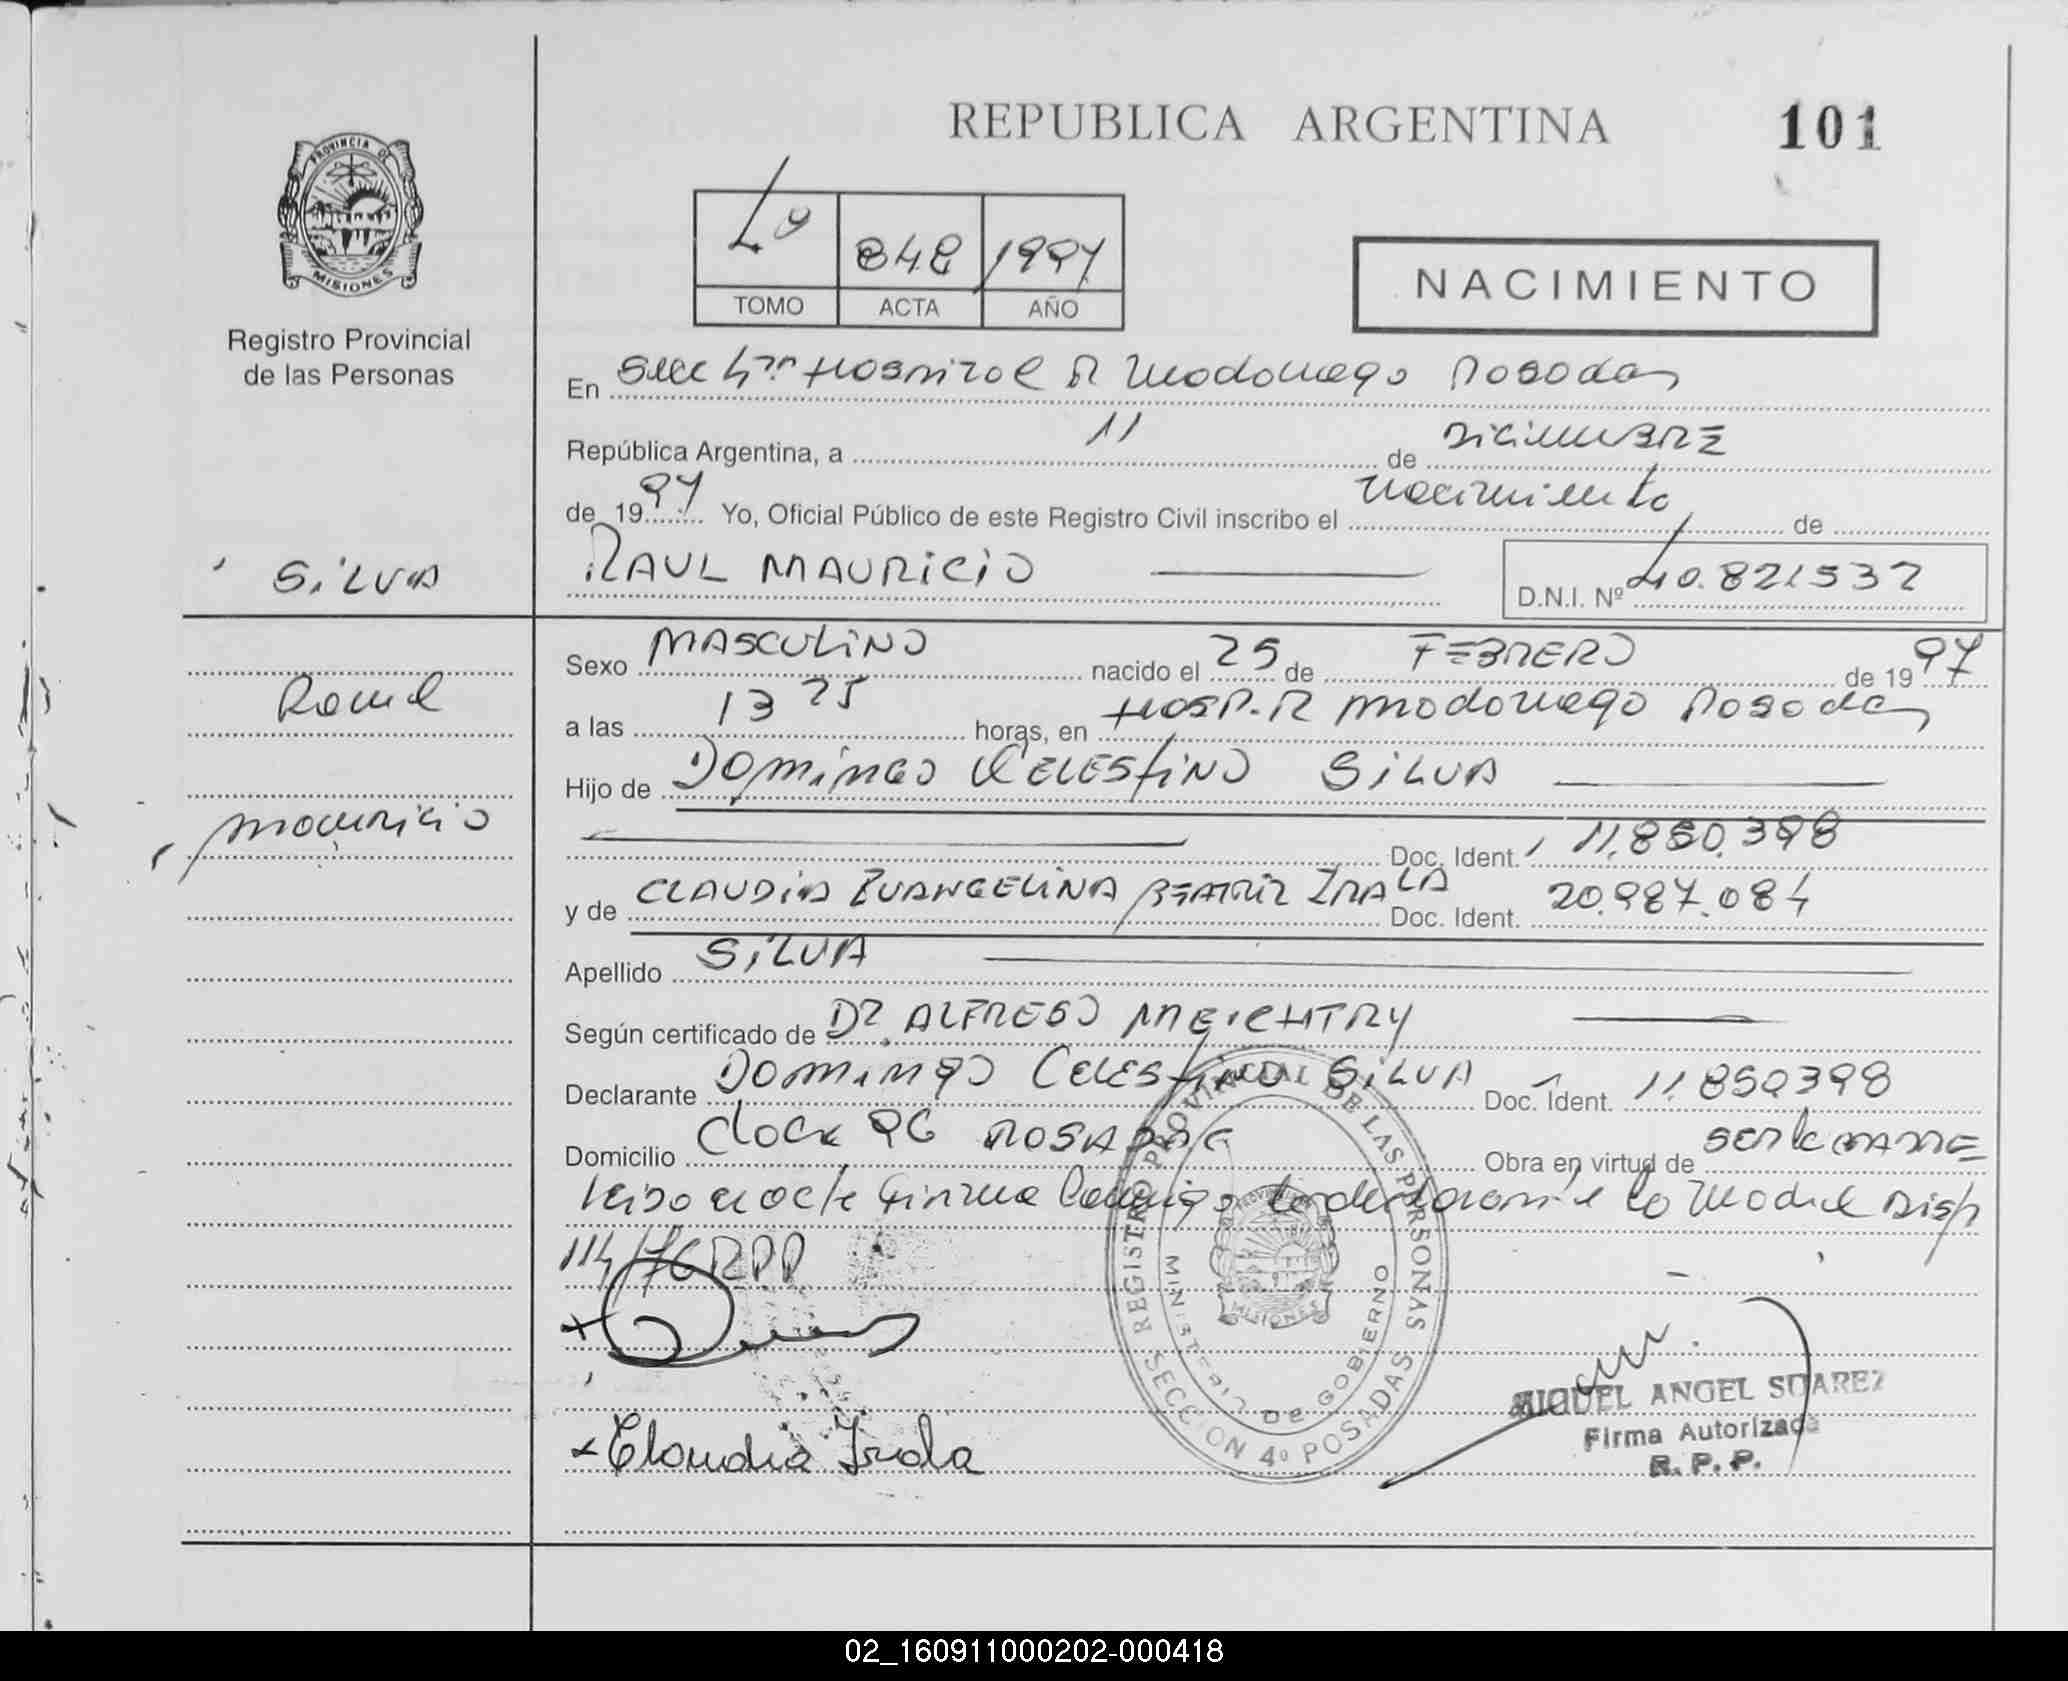 REPUBLICA ARGENTINA 101
PROVINCIA DE
MISIONES
Registro Provincial
de las Personas
4º 848 1997
TOMO ACTA AÑO
NACIMIENTO
En Secc 4ta Hospital R Madariaga Posadas
República Argentina, a 11 de DICIEMBRE
de 1997 Yo, Oficial Público de este Registro Civil inscribo el Nacimiento de
SILVA
RAUL MAURICIO
D.N.I. Nº 40.821537
Sexo MASCULINO nacido el 25 de FEBRERO de 1997
Raul
a las 13 25 horas, en HOSP. R Madariaga Posadas
Hijo de DOMINGO CELESTINO SILVA
Mauricio
Doc. Ident. 11.850.398
y de CLAUDIA EVANGELINA BEATRIZ IRALA Doc. Ident. 20.987.084
Apellido SILVA
Según certificado de DR ALFREDO MEICHTRY
Declarante DOMINGO CELESTINO SILVA Doc. Ident. 11.850398
Domicilio Chac 96 POSADAS Obra en virtud de ser la PADRE
leida el acta firma conmigo la declarante la Madre Disp
114/76 RPP
REGISTRO PROVINCIAL DE LAS PERSONAS
MINISTERIO DE GOBIERNO
SECCION 4º POSADAS
MISIONES
MIGUEL ANGEL SUAREZ
Firma Autorizada
R. P. P.
Claudia Irala
02_160911000202-000418